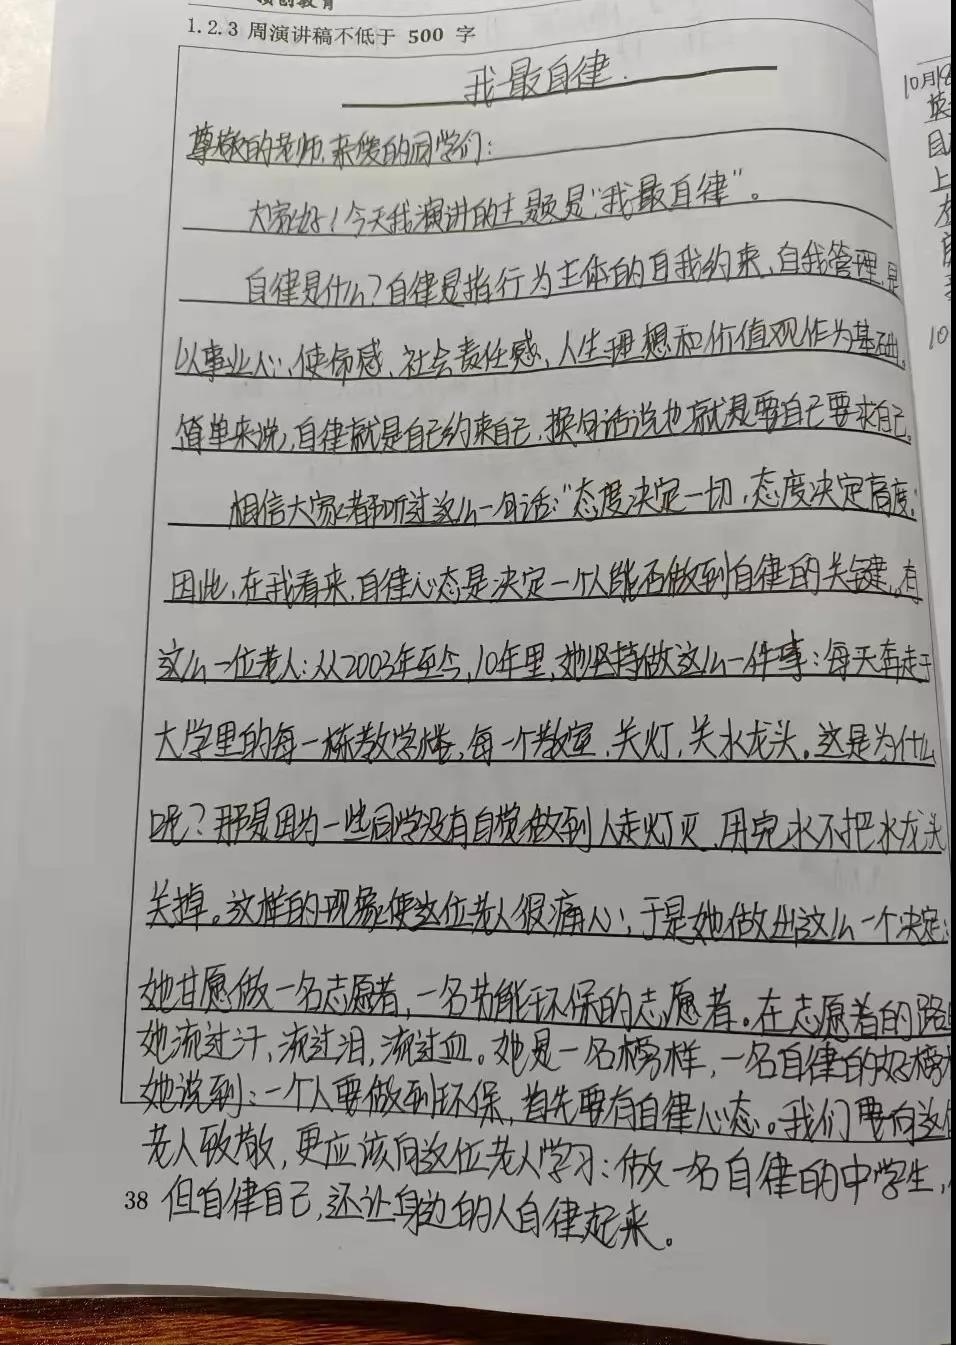 1.2.3 周演讲稿不低于 500 字
我最自律.
尊敬的老师、亲爱的同学们:
大家好!今天我演讲的主题是"我最自律"。
自律是什么?自律是指行为主体的自我约束、自我管理,是
以事业心、使命感、社会责任感、人生理想和价值观作为基础。
简单来说,自律就是自己约束自己,换句话说也就是要自己要求自己。
相信大家都听过这么一句话:"态度决定一切,态度决定高度."
因此,在我看来,自律心态是决定一个人能否做到自律的关键。有
这么一位老人:从2003年至今,10年里,她坚持做这么一件事:每天奔走于
大学里的每一栋教学楼,每一个教室,关灯,关水龙头。这是为什么
呢?那是因为一些同学没有自觉做到人走灯灭,用完水不把水龙头
关掉。这样的现象使这位老人很痛心;于是她做出这么一个决定:
她甘愿做一名志愿者,一名节能环保的志愿者。在志愿者的路
她流过汗,流过泪,流过血。她是一名榜样,一名自律的好榜
她说到:一个人要做到环保,首先要有自律心态。我们要向这
老人致敬,更应该向这位老人学习:做一名自律的中学生,
但自律自己,还让身边的人自律起来。
38
10月18
目
上
10